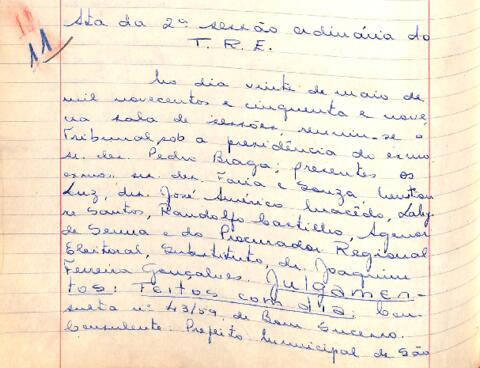 11
11
Ata da 2ª sessão ordinária do
T. R. E.
No dia vinte de maio de
mil novecentos e cinquenta e nove,
na sala de sessões, reuniu-se o
Tribunal, sob a presidência do exmo
sr. des. Pedro Braga; presentes os
exmos srs. des. Faria e Souza,
Luz, drs. José Américo Macêdo, Laby-
re Santos, Randolfo Castilho, Agenor
de Senna e do Procurador Regional
Eleitoral, Substituto, dr. Joaquim
Ferreira Gonçalves. Julgamen-
tos: Feitos com dia: Con-
sulta nº 43/59, de Bom Sucesso.
Consulente: Prefeito Municipal de São